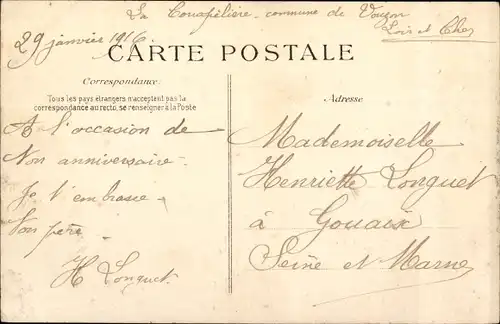 La Conapelière - commune de Vouzon
Loir et Cher
29 janvier 1916.
CARTE POSTALE
Correspondance
Tous les pays étrangers n'acceptent pas la
correspondance au recto, se renseigner à la Poste
Adresse
A l'occasion de
Ton anniversaire
Je t'embrasse
Ton père
H Longuet
Mademoiselle
Henriette Longuet
à Gouaix
Seine et Marne